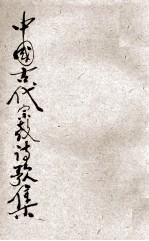 中國古代宗教詩歌集